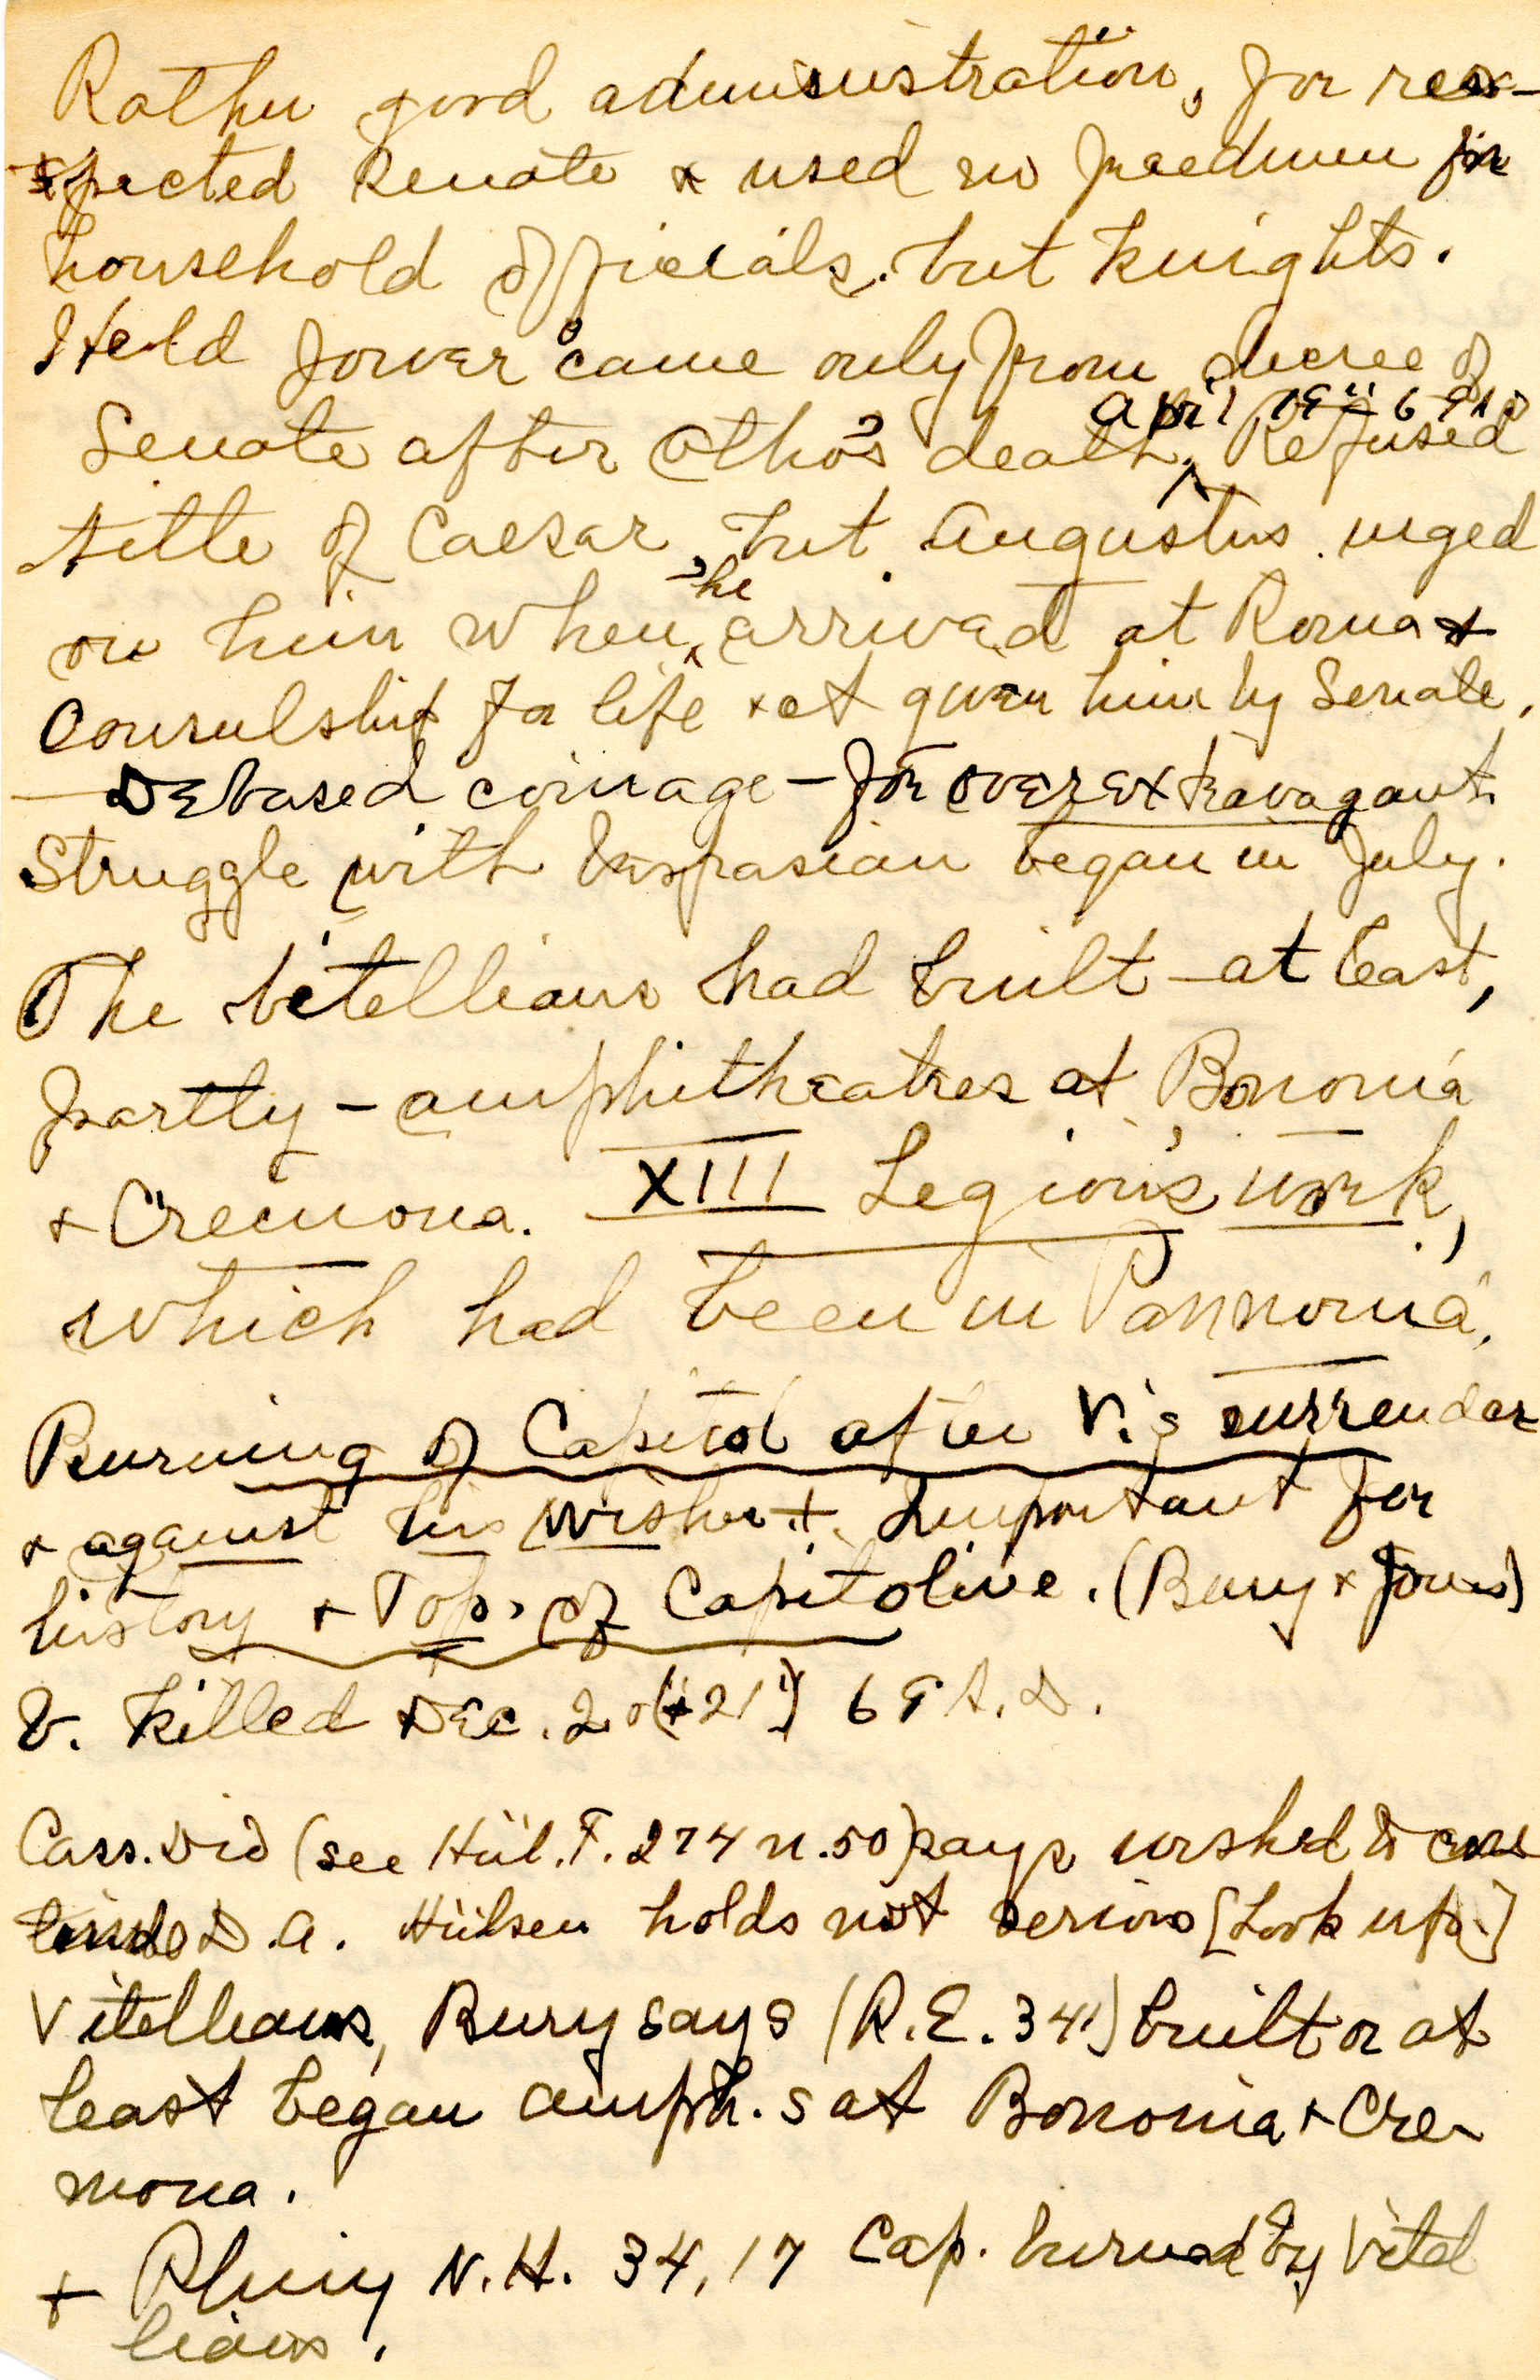 Rather good administration, for res-
pected Senate & used no freedmen for
household officials, but knights.
Held power came only from decree of
Senate after Otho's death, April 19" 69 A.D. Refused
title of Caesar, but Augustus urged
on him when he arrived at Roma &
Consulship for life &ct given him by Senate.
— Debased coinage — for over extravagant.
Struggle with Vespasian began in July.
The Vitellians had built — at least,
partly — amphitheatres at Bononia
& Cremona. XIII Legion's work,
which had been in Pannonia.
Burning of Capitol after V.'s surrender
& against his wishes +. Important for
history & Top. of Capitoline. (Bury & Jones)
V. killed Dec. 20 (21") 69 A.D.
Cass. Dio (see Hül. F. 274 n. 50) says wished to
D.A. Hülsen holds not serious [Look up.]
Vitellians, Bury says (R.E. 341) built or at
least began amph.s at Bononia & Cre-
mona.
+ Pliny N.H. 34, 17 Cap. burned by Vitel
lians.